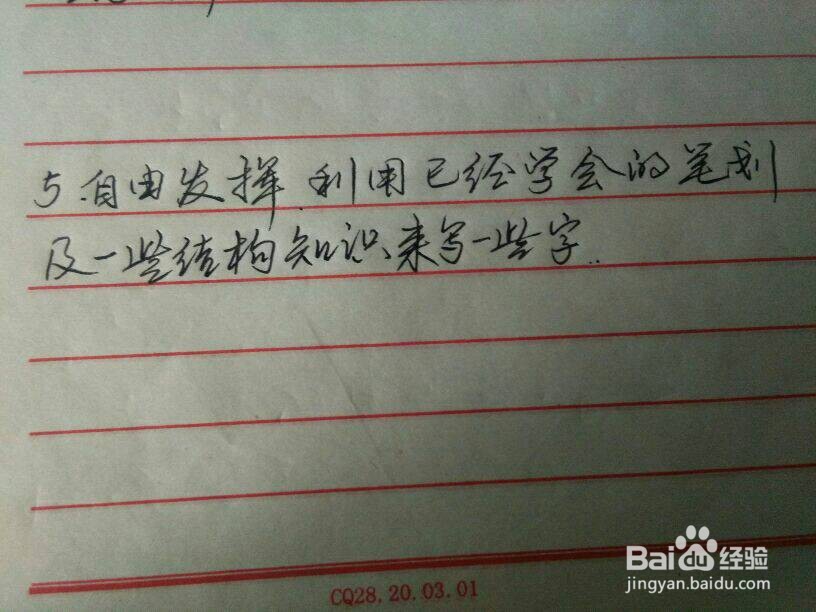 5.自由发挥.利用已经学会的笔划
及一些结构知识来写一些字..
CQ28.20.03.01
Baidu经验
jingyan.baidu.com